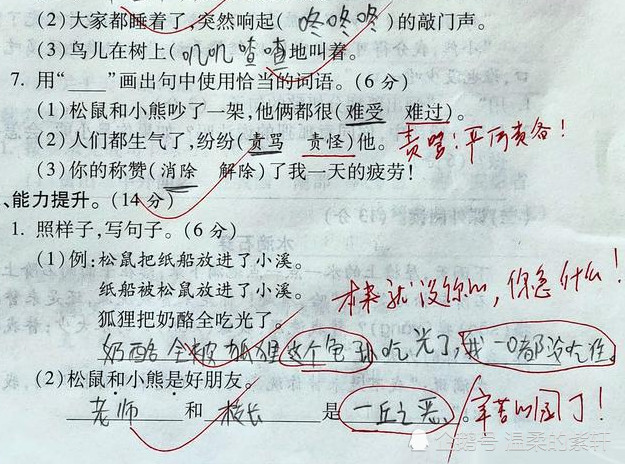 (2)大家都睡着了,突然响起(咚咚咚)的敲门声。
(3)鸟儿在树上(叽叽喳喳地叫着。
7. 用“____”画出句中使用恰当的词语。(6分)
(1)松鼠和小熊吵了一架,他俩都很(难受 难过)。
(2)人们都生气了,纷纷(责骂 责怪)他。责骂:严厉责备!
(3)你的称赞(消除 解除)了我一天的疲劳!
、能力提升。(14分)
1. 照样子,写句子。(6分)
(1)例:松鼠把纸船放进了小溪。
纸船被松鼠放进了小溪。
本来就没你的,你急什么!
狐狸把奶酪全吃光了。
奶酪全被狐狸这个龟孙吃光了,我一口都没吃住。
(2)松鼠和小熊是好朋友。
老师 和 校长 是 一丘之恶。宰苦的园丁!
企鹅号 温柔的紫轩